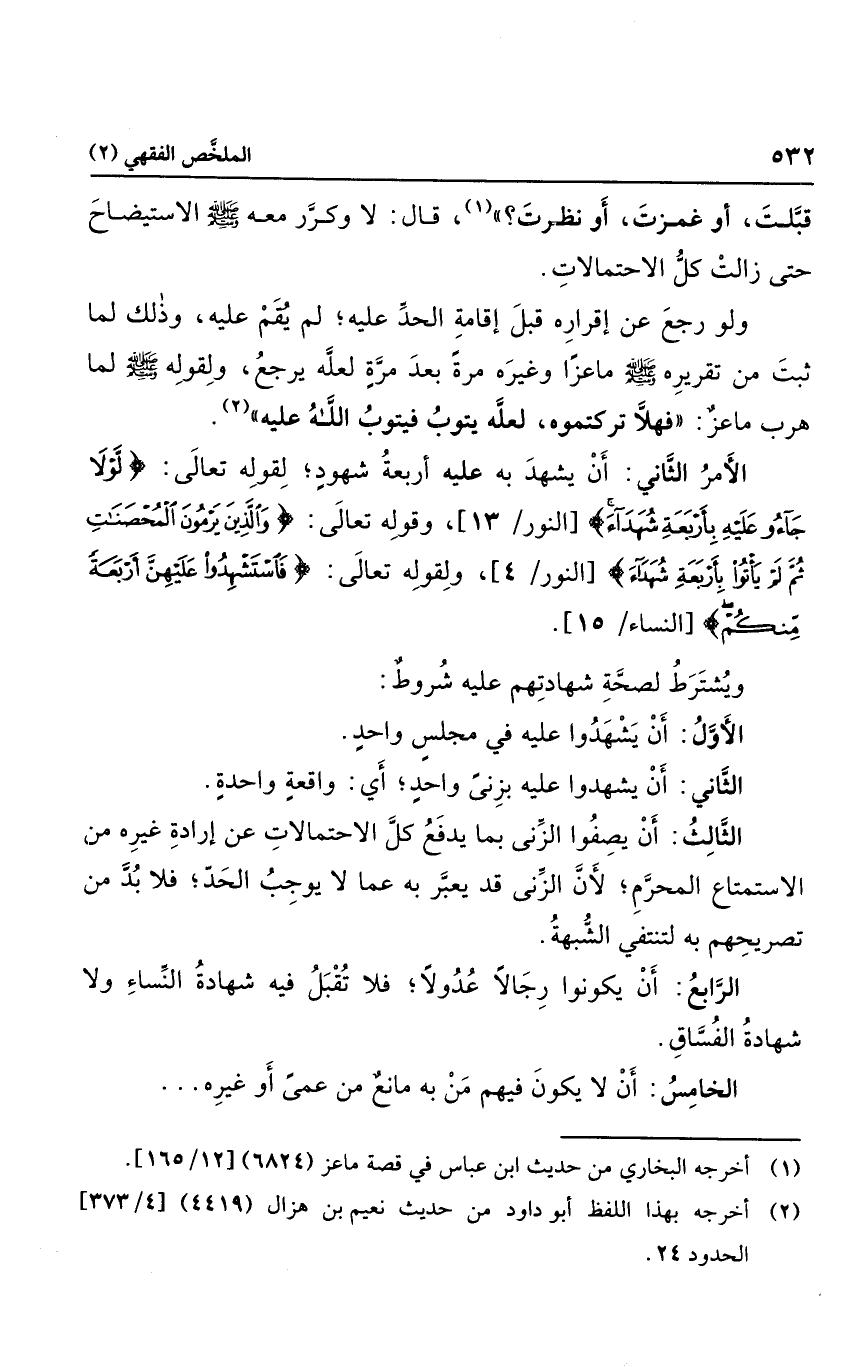 ٥٣٢ الملخَّص الفقهي (٢)
قبَّلـتَ، أو غمـزتَ، أَو نظرتَ؟»(١)، قـال: لا وكـرَّر معـه ﷺ الاستيضـاحَ
حتى زالتْ كلُّ الاحتمالاتِ.
ولو رجعَ عن إقرارِه قبلَ إقامةِ الحدِّ عليه؛ لم يُقَمْ عليه، وذٰلك لما
ثبتَ من تقريرِه ﷺ ماعزًا وغيرَه مرةً بعدَ مرَّةٍ لعلَّه يرجعُ، ولِقولِه ﷺ لما
هرب ماعزٌ: «فهلاَّ تركتموه، لعلَّه يتوبُ فيتوبُ اللَّـهُ عليه»(٢).
الأَمرُ الثَّاني: أَنْ يشهدَ به عليه أربعةُ شهودٍ؛ لِقولِه تعالَى: ﴿ لَّوْلَا
جَآءُو عَلَيْهِ بِأَرْبَعَةِ شُهَدَآءَۚ﴾ [النور/ ١٣]، وقولِه تعالَى: ﴿ وَٱلَّذِينَ يَرْمُونَ ٱلْمُحْصَنَٰتِ
ثُمَّ لَمْ يَأْتُوا۟ بِأَرْبَعَةِ شُهَدَآءَ ﴾ [النور/ ٤]، ولقولِه تعالَى: ﴿ فَٱسْتَشْهِدُوا۟ عَلَيْهِنَّ أَرْبَعَةً
مِّنكُمْۖ ﴾ [النساء/ ١٥].
ويُشتَرَطُ لصحَّةِ شهادتِهم عليه شُروطٌ:
الأَوَّلُ: أَنْ يَشْهَدُوا عليه في مجلسٍ واحدٍ.
الثَّاني: أَنْ يشهدوا عليه بزِنىً واحدٍ؛ أَي: واقعةٍ واحدةٍ.
الثَّالِثُ: أَنْ يصِفُوا الزِّنى بما يدفَعُ كلَّ الاحتمالاتِ عن إرادةِ غيرِه من
الاستمتاع المحرَّمِ؛ لأَنَّ الزِّنى قد يعبَّر به عما لا يوجِبُ الحَدّ؛ فلا بُدَّ من
تصريحِهم به لتنتفي الشُّبهةُ.
الرَّابعُ: أَنْ يكونوا رِجَالاً عُدُولاً؛ فلا تُقْبَلُ فيه شهادةُ النِّساءِ ولا
شهادةُ الفُسَّاقِ.
الخامِسُ: أَنْ لا يكونَ فيهم مَنْ به مانعٌ من عمىً أَو غيرِه...
(١) أخرجه البخاري من حديث ابن عباس في قصة ماعز (٦٨٢٤) [١٢/ ١٦٥].
(٢) أخرجه بهذا اللفظ أبو داود من حديث نعيم بن هزال (٤٤١٩) [٤/ ٣٧٣]
الحدود ٢٤.